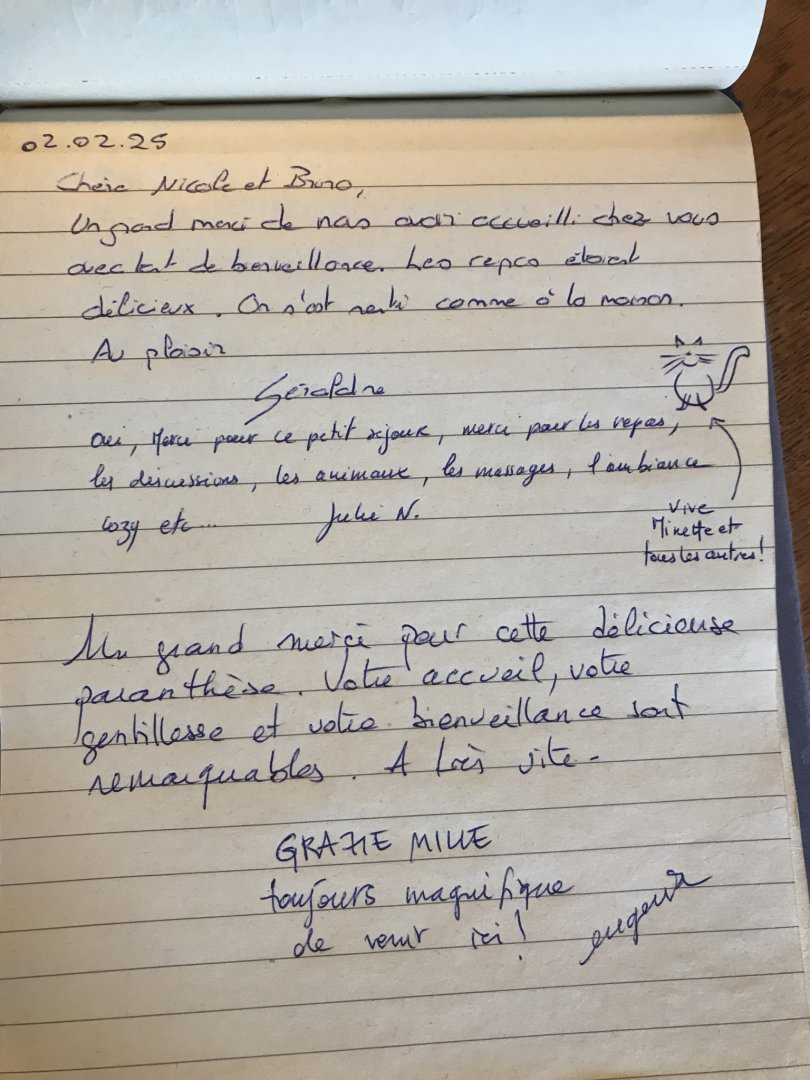 02.02.25
Chère Nicole et Bruno,
Un grand merci de nous avoir accueilli chez vous
avec tant de bienveillance. Les repas étaient
délicieux. On s'est senti comme à la maison.
Au plaisir
Géraldine
Oui, Merci pour ce petit séjour, merci pour les repas,
les discussions, les animaux, les massages, l'ambiance
cozy etc...
Julie N.
Vive
Minette et
tous les autres!
Un grand merci pour cette délicieuse
paranthèse. Votre accueil, votre
gentillesse et votre bienveillance sont
remarquables. A très vite.
GRAZIE MILLE
toujours magnifique
de venir ici!